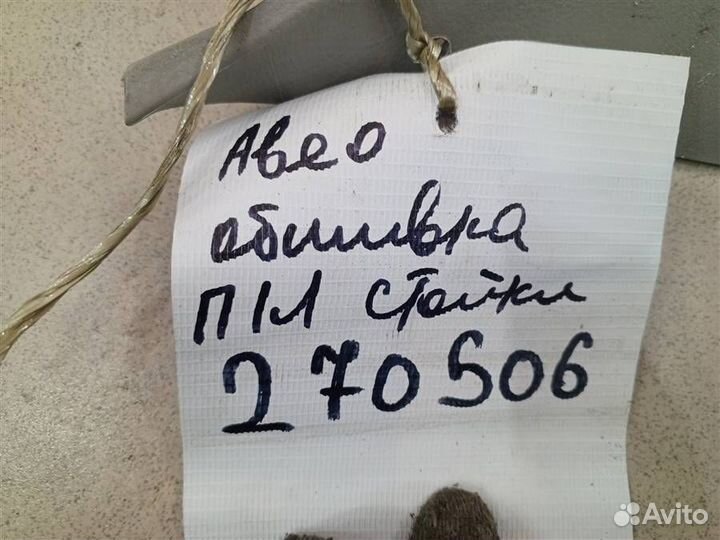 Авео
обшивка
П/Л стойки
270506
Avito